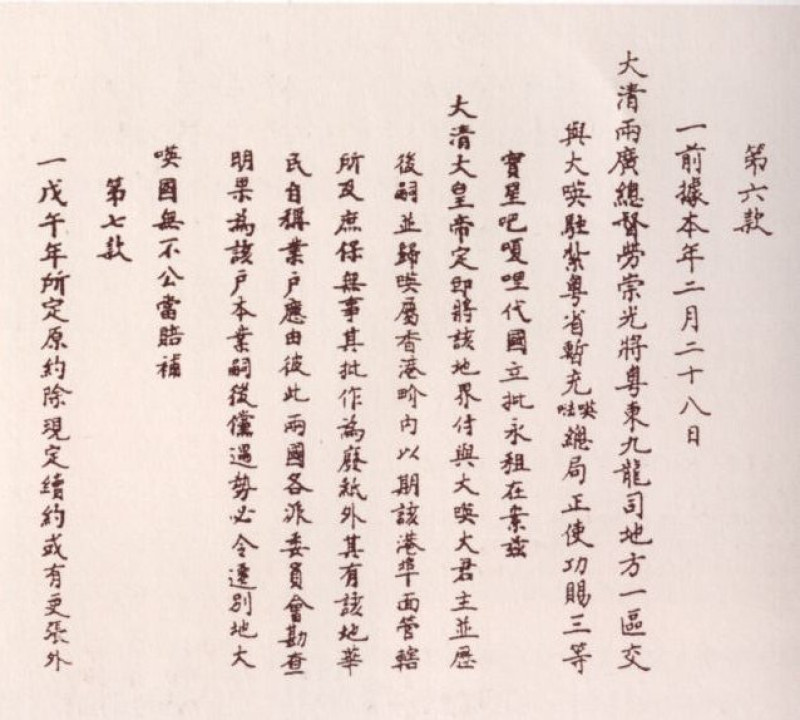 第六款
一前據本年二月二十八日
大清兩廣總督勞崇光將粵東九龍司地方一區交
與大㖫駐紮粵省暫充㖫㖼總局正使功賜三等
寶星吧嗄哩代國立批永租在案茲
大清大皇帝定即將該地界付與大㖫大君主並歷
後嗣並歸㖫屬香港界內以期該港埠面管轄
所及庶保無事其批作為廢紙外其有該地華
民自稱業戶應由彼此兩國各派委員會勘查
明果為該戶本業嗣後儻遇勢必令遷別地大
㖫國無不公當賠補
第七款
一戊午年所定原約除現定續約或有更張外